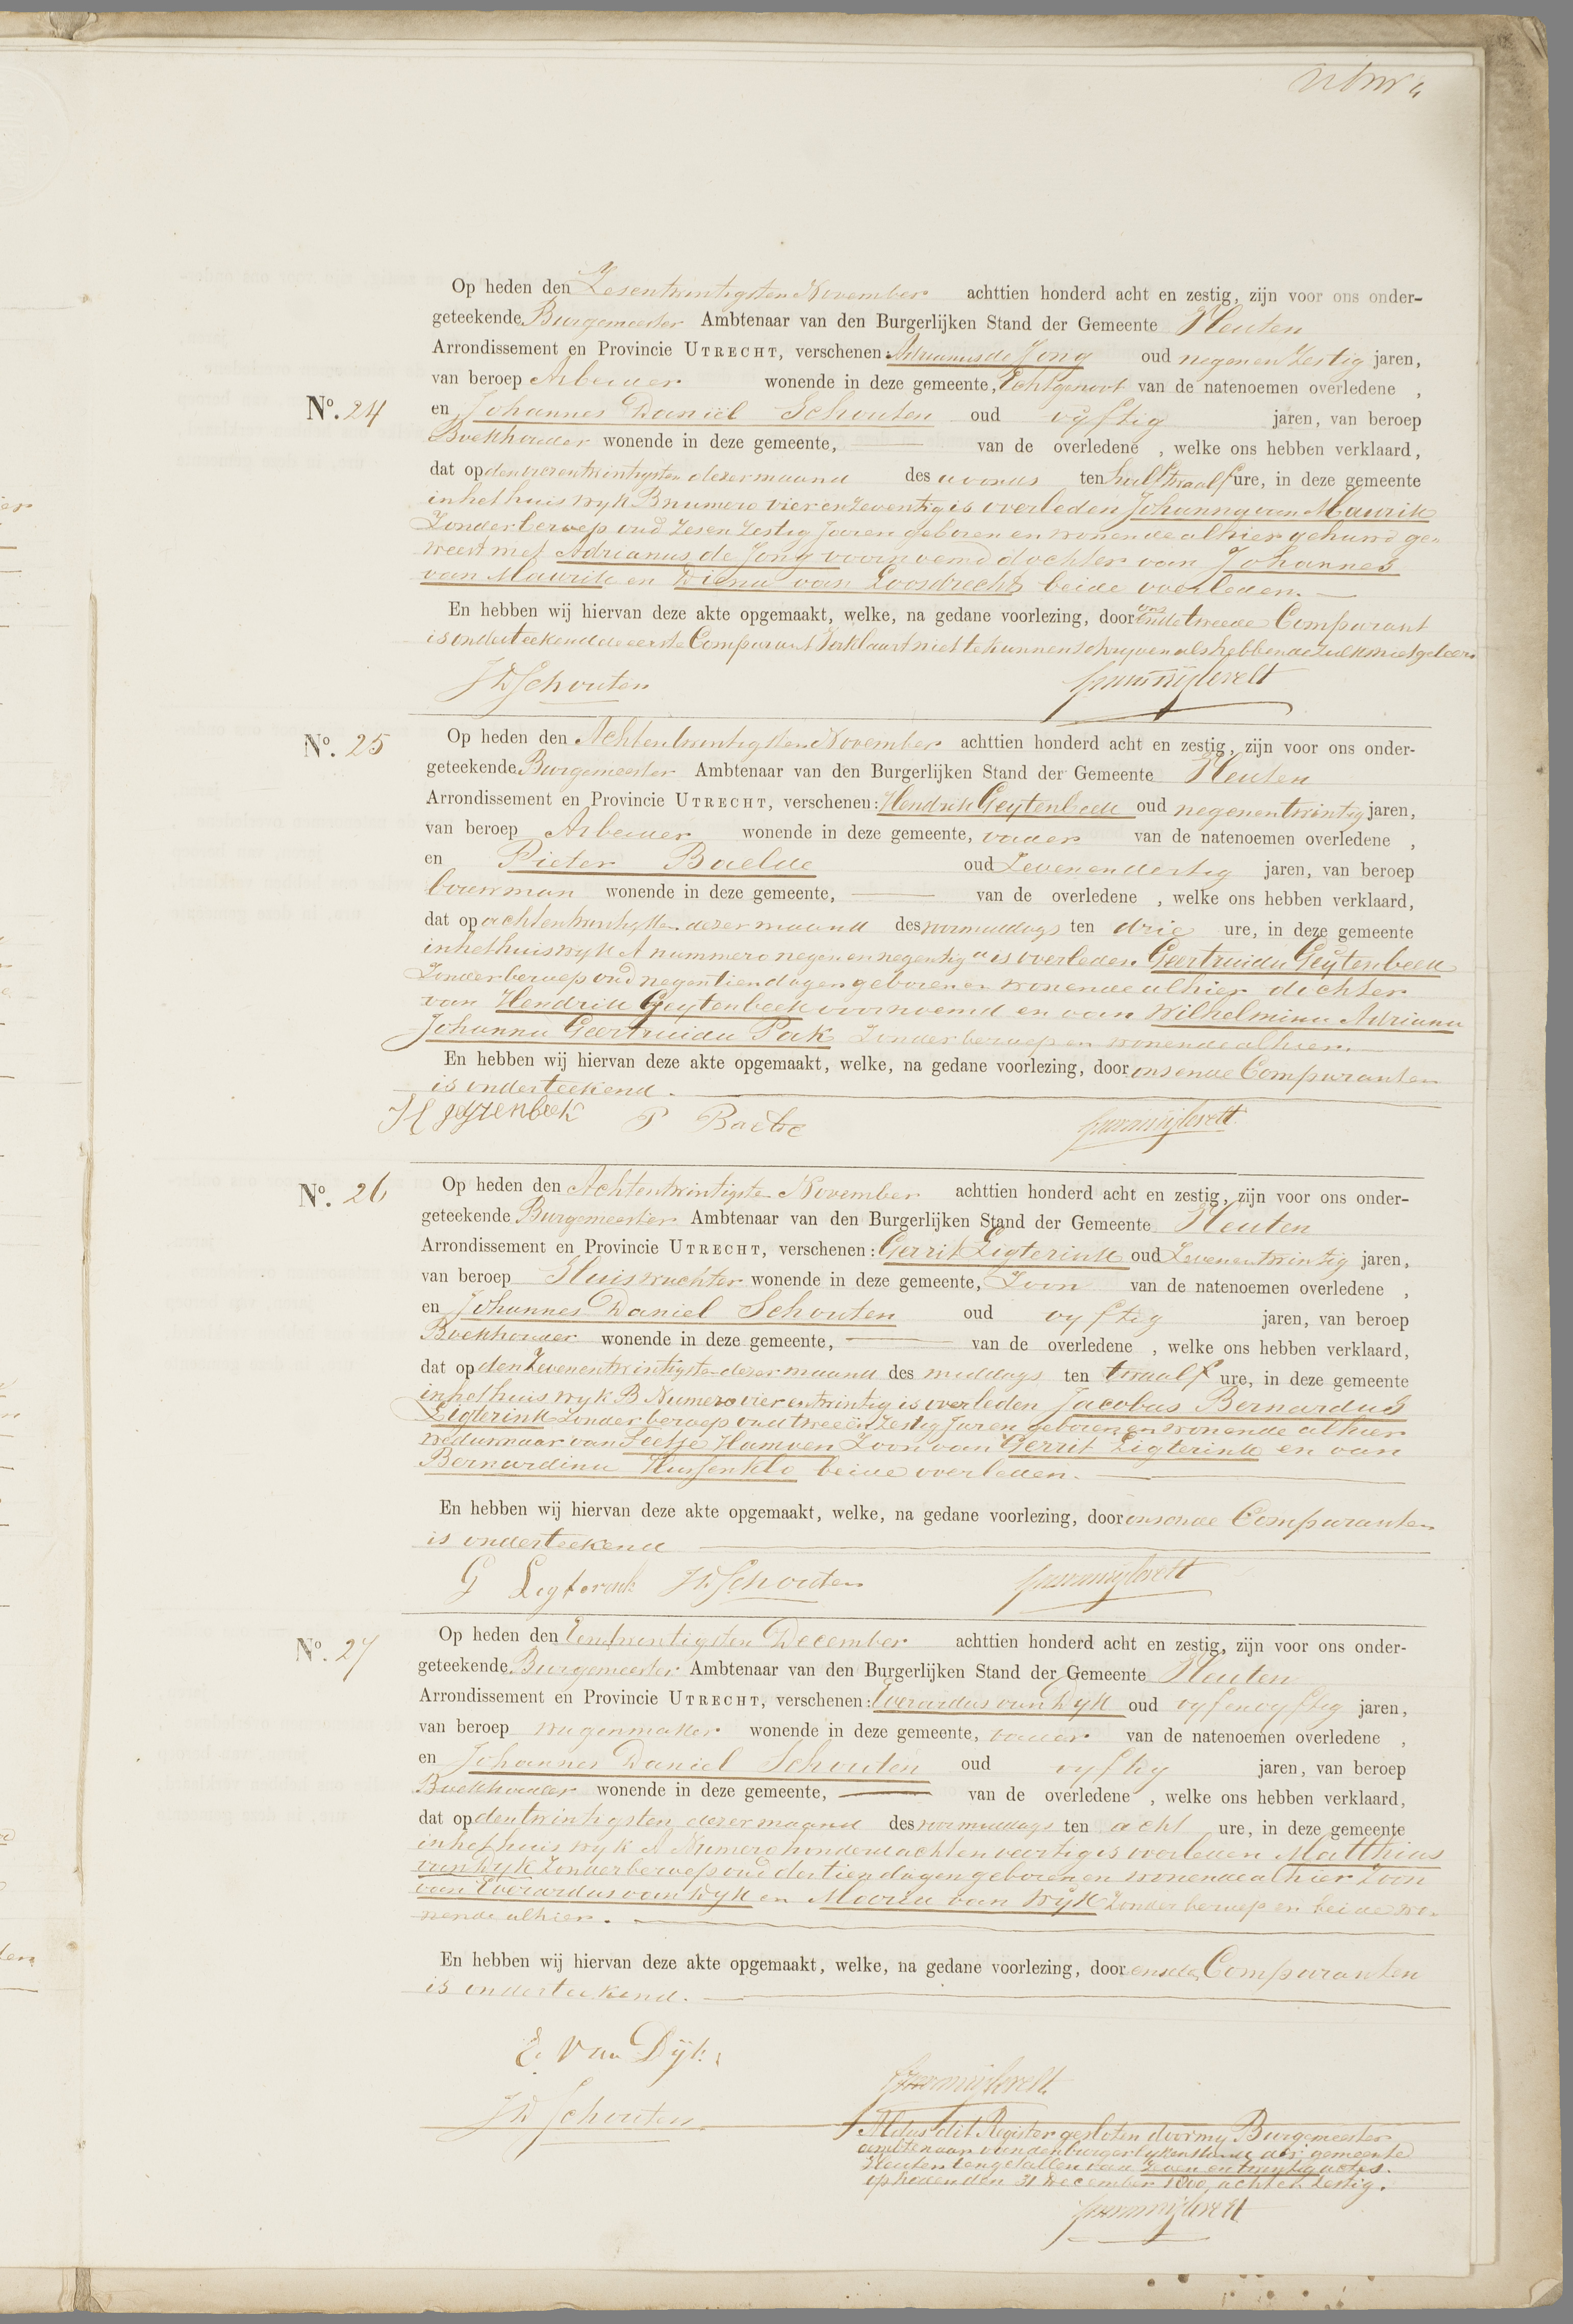 Op heden den Zesentwintigsten November achttien honderd acht en zestig, zijn voor ons onder-
geteekende Burgemeester Ambtenaar van den Burgerlijken Stand der Gemeente Houten
Arrondissement en Provincie UTRECHT, verschenen: Adrianus de Jong oud negen en Zestig jaren,
van beroep Arbeider wonende in deze gemeente, Echtgenoot van de natenoemen overledene ,
No. 24 en Johannes Daniël Schouten oud vyftig jaren, van beroep
Boekhouder wonende in deze gemeente, van de overledene , welke ons hebben verklaard,
dat op den vierentwintigsten dezer maand des avonds ten half twaalf ure, in deze gemeente
in het huis wyk B numero vier en Zeventig is overleden Johanna van Maurik
Zonder beroep oud Zes en Zestig Jaren geboren en wonende alhier gehuwd ge-
weest met Adrianus de Jong voornoemd dochter van Johannes
van Maurik en Diena van Loosdrecht beide overleden.
En hebben wij hiervan deze akte opgemaakt, welke, na gedane voorlezing, door ons en de tweede Comparant
is onderteekend de eerste Comparant Verklaart niet te kunnen schryven als hebbende zulks niet geleerd
JD Schouten
No. 25 Op heden den Achtentwintigsten November achttien honderd acht en zestig, zijn voor ons onder-
geteekende Burgemeester Ambtenaar van den Burgerlijken Stand der Gemeente Houten
Arrondissement en Provincie UTRECHT, verschenen: Hendrik Geytenbeek oud negenentwintig jaren,
van beroep Arbeider wonende in deze gemeente, vader van de natenoemen overledene ,
en Pieter Baelde oud Zevenendertig jaren, van beroep
bouwman wonende in deze gemeente, van de overledene , welke ons hebben verklaard,
dat op achtentwintigsten dezer maand des voormiddags ten drie ure, in deze gemeente
in het huis wyk A nummero negen en negentig a is overleden Geertruida Geytenbeek
Zonder beroep oud negentien dagen geboren en wonende alhier dochter
van Hendrik Geytenbeek voornoemd en van Wilhelmina Adriana
Johanna Geertruida Pak Zonder beroep en wonende alhier.
En hebben wij hiervan deze akte opgemaakt, welke, na gedane voorlezing, door ons en de Comparanten
is onderteekend.
H Geytenbeek P Baelde
No. 26 Op heden den Achtentwintigsten November achttien honderd acht en zestig, zijn voor ons onder-
geteekende Burgemeester Ambtenaar van den Burgerlijken Stand der Gemeente Houten
Arrondissement en Provincie UTRECHT, verschenen: Gerrit Ligterink oud Zevenentwintig jaren,
van beroep Sluiswachter wonende in deze gemeente, Zoon van de natenoemen overledene ,
en Johannes Daniel Schouten oud vyftig jaren, van beroep
Boekhouder wonende in deze gemeente, van de overledene , welke ons hebben verklaard,
dat op den Zevenentwintigsten dezer maand des middags ten twaalf ure, in deze gemeente
in het huis wyk B Numero vier en twintig is overleden Jacobus Bernardus
Ligterink Zonder beroep oud twee en Zestig Jaren geboren en wonende alhier
weduwnaar van Seetje Zoon van Gerrit Ligterink en van
Bernardina beide overleden.
En hebben wij hiervan deze akte opgemaakt, welke, na gedane voorlezing, door ons en de Comparanten
is onderteekend
G Ligterink JD Schouten
No. 27 Op heden den Eenentwintigsten December achttien honderd acht en zestig, zijn voor ons onder-
geteekende Burgemeester Ambtenaar van den Burgerlijken Stand der Gemeente Houten
Arrondissement en Provincie UTRECHT, verschenen: Everardus van Dyk oud vyfenvyftig jaren,
van beroep wagenmaker wonende in deze gemeente, vader van de natenoemen overledene ,
en Johannes Daniel Schouten oud vyftig jaren, van beroep
Boekhouder wonende in deze gemeente, van de overledene , welke ons hebben verklaard,
dat op den twintigsten dezer maand des voormiddags ten acht ure, in deze gemeente
in het huis wyk A Numero honderd achtenveertig is overleden Matthias
van Dyk Zonder beroep oud dertien dagen geboren en wonende alhier Zoon
van Everardus van Dyk en Maria van Wyk Zonder beroep en beide wo-
nende alhier.
En hebben wij hiervan deze akte opgemaakt, welke, na gedane voorlezing, door ons en de Comparanten
is onderteekend.
E. van Dijk
JD Schouten
Aldus dit Register gesloten door my Burgemeester
ambtenaar van den burgerlyken stand der gemeente
Houten ten getallen van Zeven en twintig actes.
op heden den 31 December 1800 acht en Zestig.